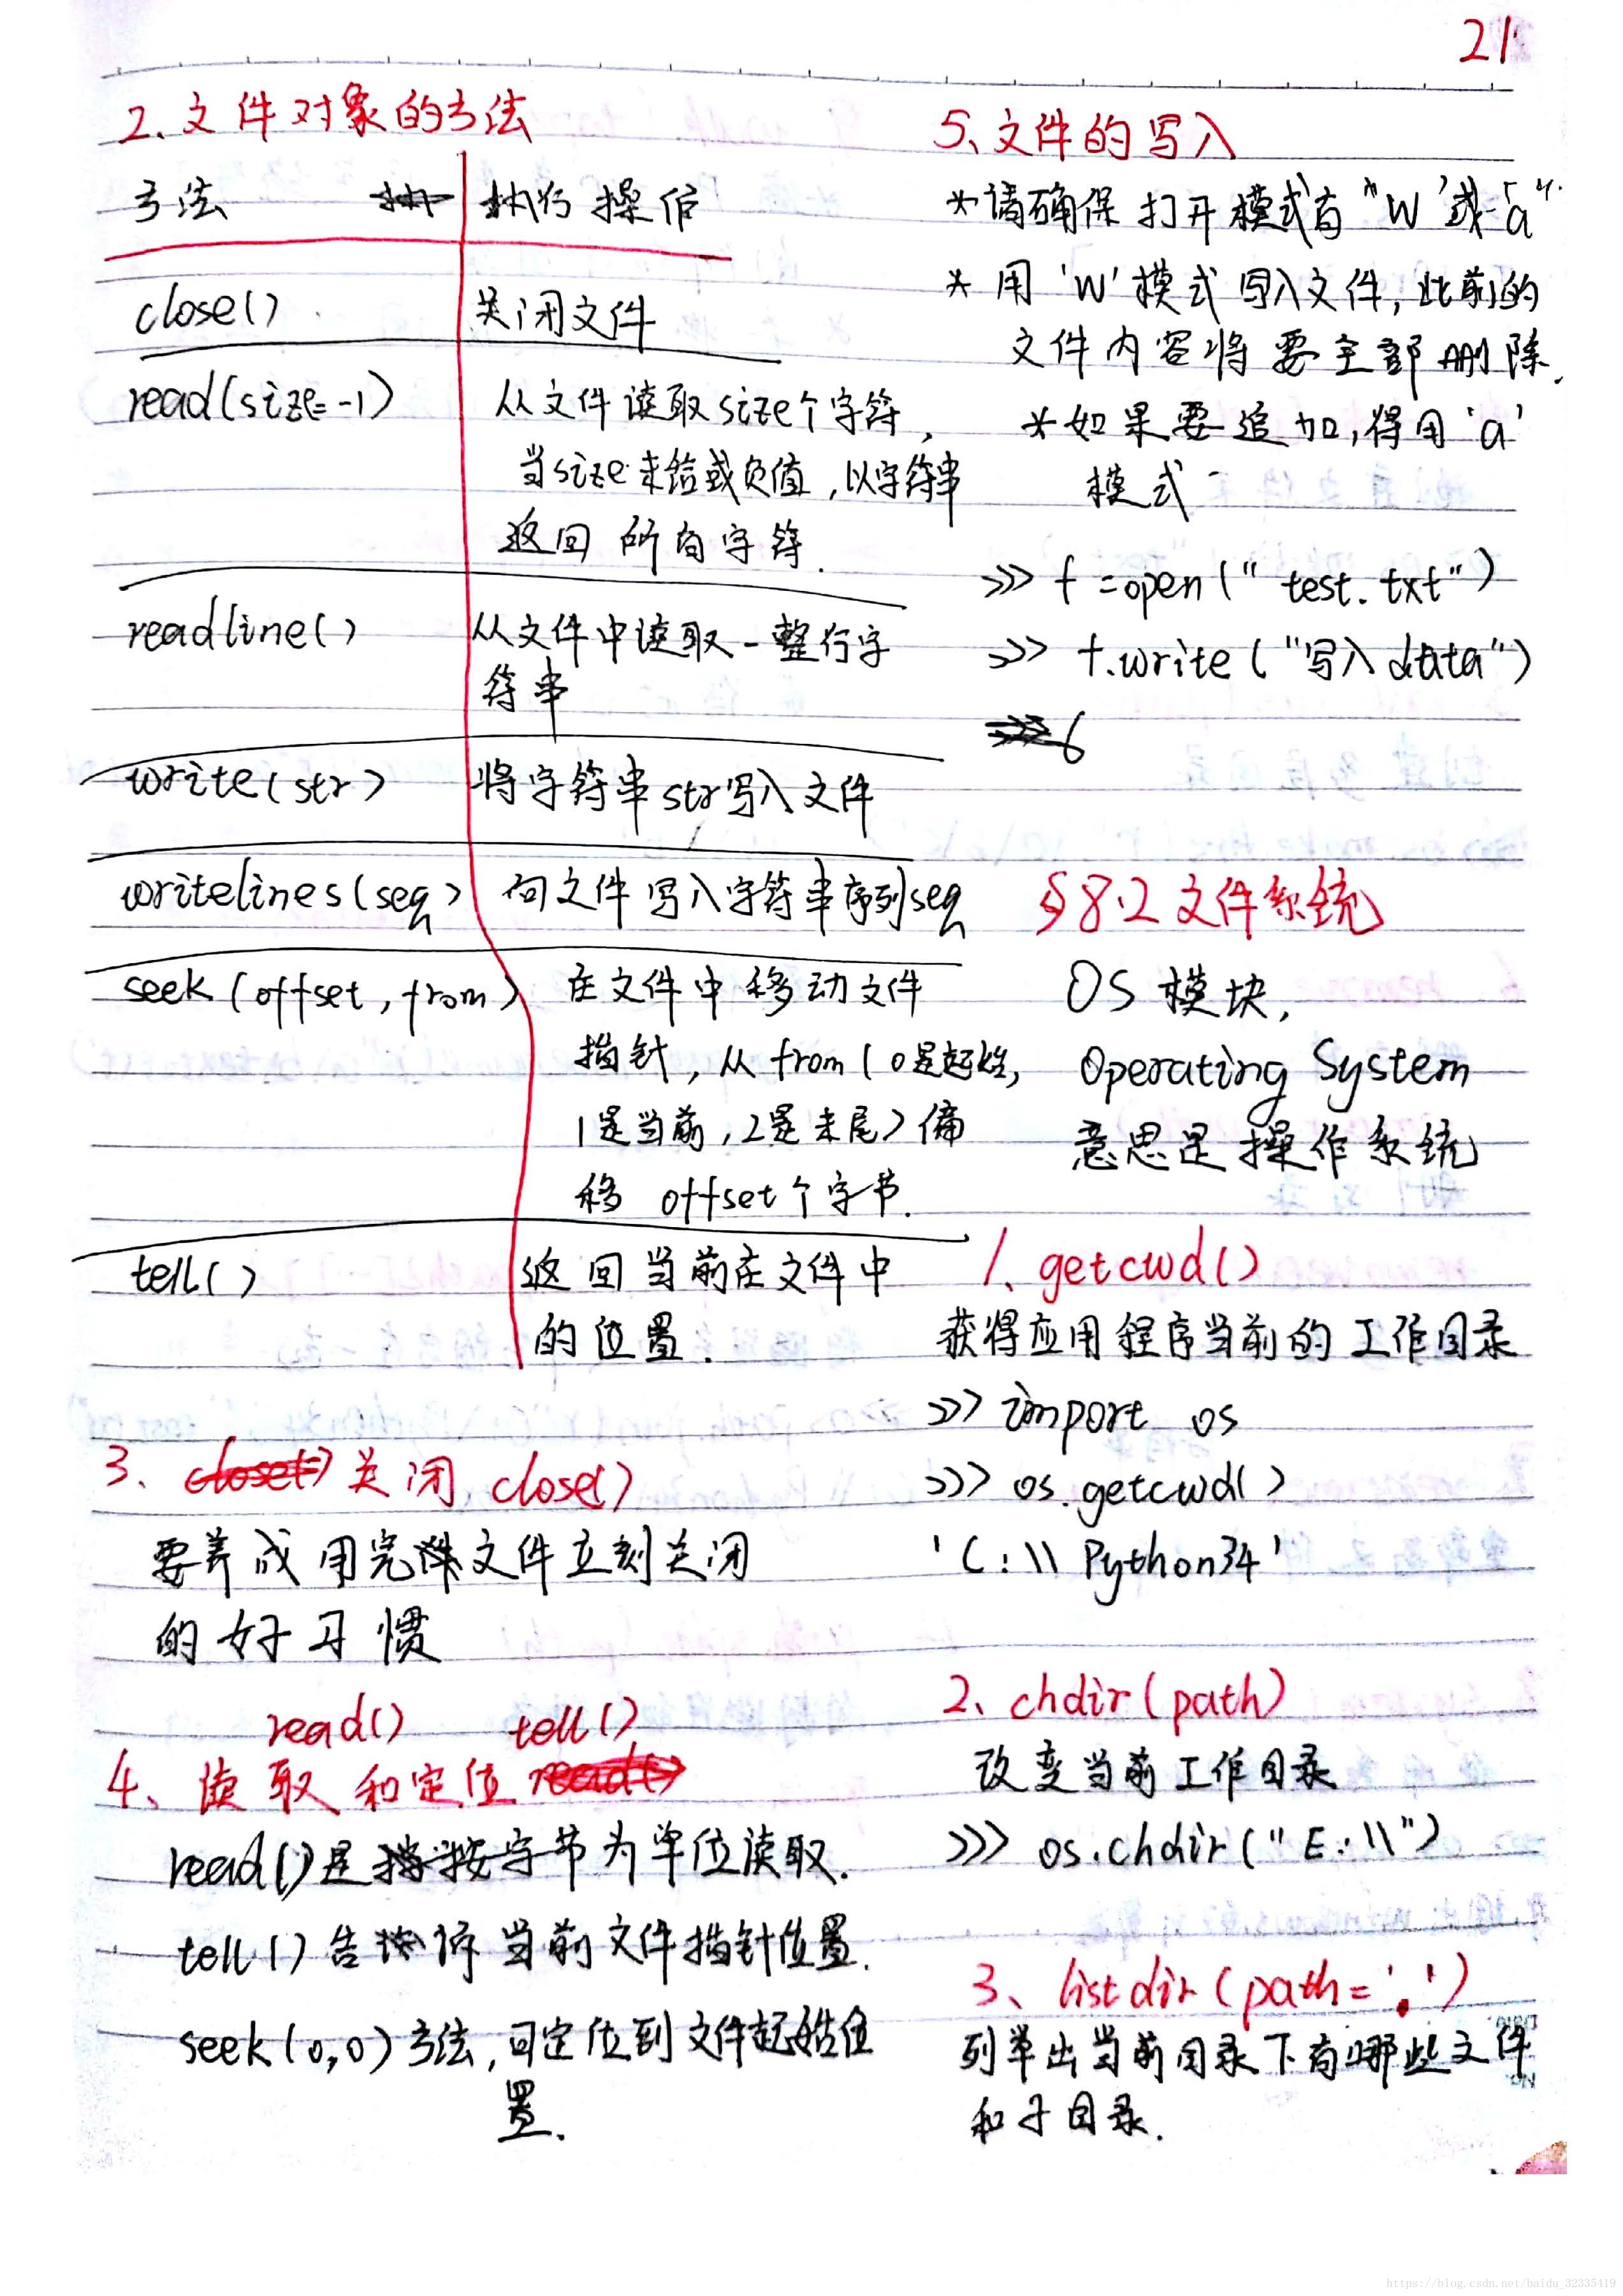 21
2、文件对象的方法
方法 执行操作
close() 关闭文件
read(size=-1) 从文件读取size个字符,
当size未给或负值,以字符串
返回所有字符.
readline() 从文件中读取一整行字
符串
write(str) 将字符串str写入文件
writelines(seq) 向文件写入字符串序列seq
seek(offset, from) 在文件中移动文件
指针,从from(0是起始,
1是当前,2是末尾)偏
移 offset个字节.
tell() 返回当前在文件中
的位置.
3、关闭 close()
要养成用完文件立刻关闭
的好习惯
read() tell()
4、读取和定位
read()是按字节为单位读取.
tell()告诉当前文件指针位置.
seek(0,0)方法,可定位到文件起始位
置.
5、文件的写入
*请确保打开模式有"W'或'a"
*用'W'模式写入文件,此前的
文件内容将要全部删除.
*如果要追加,得用'a'
模式
>>> f=open("test.txt")
>>> f.write("写入data")
6
§8.2 文件系统
OS模块,
Operating System
意思是操作系统
1、getcwd()
获得应用程序当前的工作目录
>>> import os
>>> os.getcwd()
'C:\\Python34'
2、chdir(path)
改变当前工作目录
>>> os.chdir("E:\\")
3、listdir(path='.')
列举出当前目录下有哪些文件
和子目录.
https://blog.csdn.net/baidu_32335419